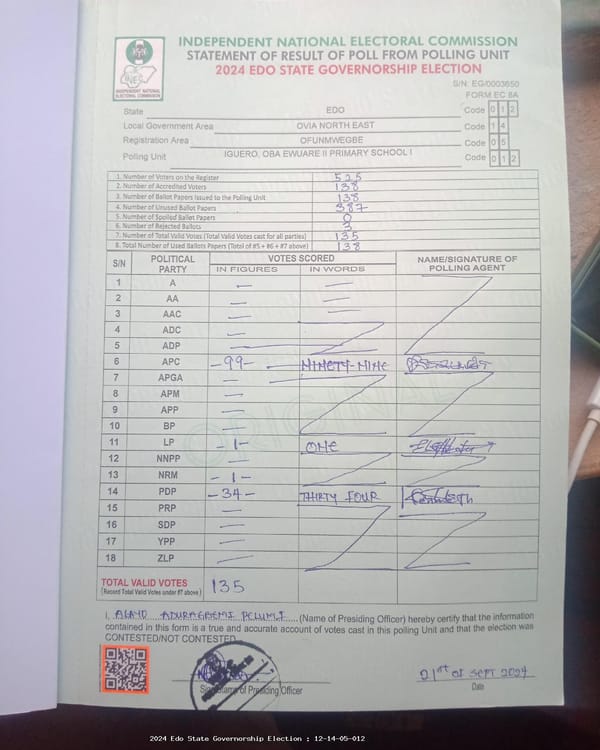 INDEPENDENT NATIONAL ELECTORAL COMMISSION
STATEMENT OF RESULT OF POLL FROM POLLING UNIT
2024 EDO STATE GOVERNORSHIP ELECTION
INEC
INDEPENDENT NATIONAL ELECTORAL COMMISSION
S/N: EG/0003650
FORM EC 8A
State EDO Code 0 1 2
Local Government Area OVIA NORTH EAST Code 1 4
Registration Area OFUNMWEGBE Code 0 5
Polling Unit IGUERO, OBA EWUARE II PRIMARY SCHOOL I Code 0 1 2
1. Number of Voters on the Register 525
2. Number of Accredited Voters 138
3. Number of Ballot Papers Issued to the Polling Unit 138
4. Number of Unused Ballot Papers 387
5. Number of Spoiled Ballot Papers 0
6. Number of Rejected Ballots 3
7. Number of Total Valid Votes (Total Valid Votes cast for all parties) 135
8. Total Number of Used Ballots Papers (Total of #5 + #6 + #7 above) 138
S/N POLITICAL PARTY VOTES SCORED NAME/SIGNATURE OF POLLING AGENT
IN FIGURES IN WORDS
1 A — —
2 AA — —
3 AAC — —
4 ADC —
5 ADP —
6 APC -99- NINETY-NINE
7 APGA —
8 APM —
9 APP —
10 BP —
11 LP -1- ONE
12 NNPP —
13 NRM -1-
14 PDP -34- THIRTY FOUR
15 PRP —
16 SDP —
17 YPP —
18 ZLP —
ORIGINAL
TOTAL VALID VOTES 135
(Record Total Valid Votes under #7 above)
I, (Name of Presiding Officer) hereby certify that the information
contained in this form is a true and accurate account of votes cast in this polling Unit and that the election was
CONTESTED/NOT CONTESTED
21st of SEPT 2024
Signature of Presiding Officer Date
2024 Edo State Governorship Election : 12-14-05-012